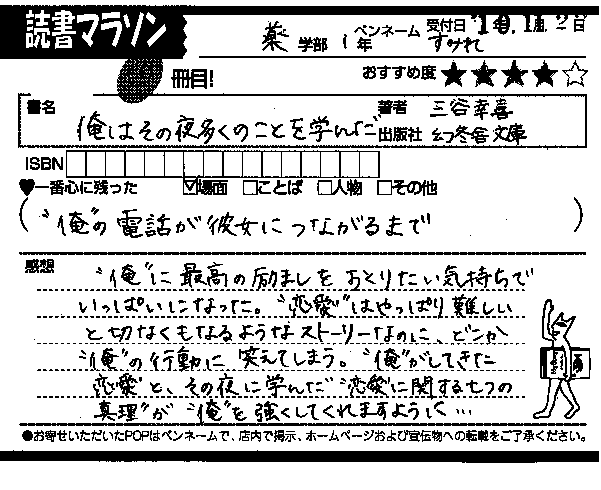 読書マラソン
薬 学部 1 年 ペンネーム すみれ 受付日 '10.11.2日
冊目! おすすめ度 ★★★★☆
書名 俺はその夜多くのことを学んだ 著者 三谷幸喜
出版社 幻冬舎文庫
ISBN
♥一番心に残った ☑場面 □ことば □人物 □その他
("俺"の電話が彼女につながるまで)
感想
"俺"に最高の励ましをおくりたい気持ちで
いっぱいになった。"恋愛"はやっぱり難しい
と切なくもなるようなストーリーなのに、どこか
"俺"の行動に笑えてしまう。"俺"がしてきた
恋愛と、その夜に学んだ"恋愛に関する七つの
真理"が"俺"を強くしてくれますように…
●お寄せいただいたPOPはペンネームで、店内で掲示、ホームページおよび宣伝物への転載をご了承ください。